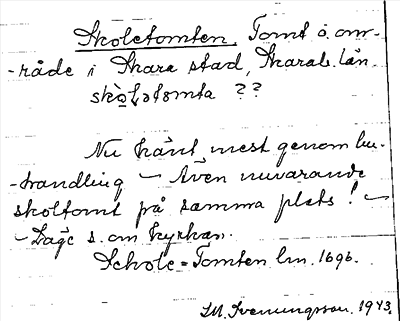 Skoletomten. Tomt o. om-
-råde i Skara stad, Skarab. län.
skòlatomta ??
Nu känt mest genom lm.-
-handling – Även nuvarande
skoltomt på samma plats! –
– Läge s. om kyrkan.
Schole=Tomten lm. 1696.
Sveningsson. 1943.